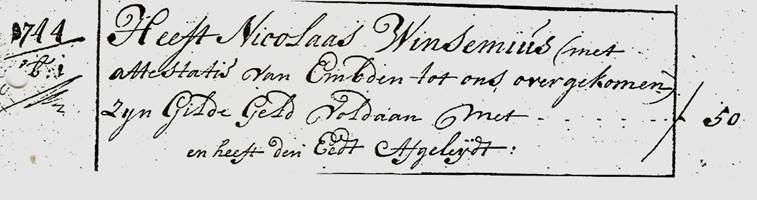 1744
Heeft Nicolaas Winsemius (met
attestatie van Embden tot ons overgekomen)
Zyn Gilde Geld Voldaan Met - - - - - 50
en heeft den Eedt Afgeleÿdt: